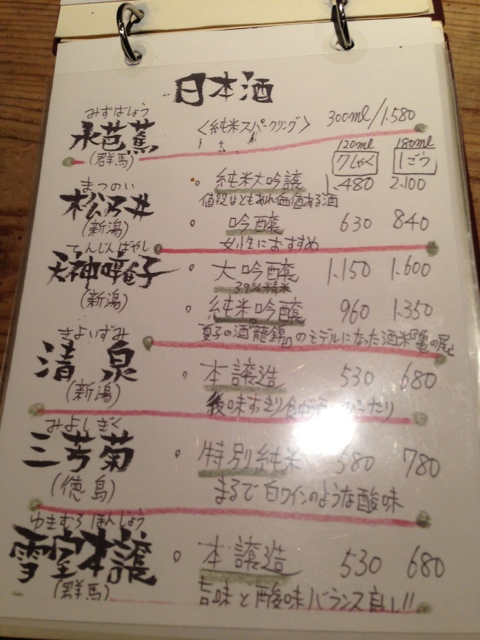 日本酒
みずばしょう
水芭蕉 〈純米スパークリング〉 300ml/1.580
(群馬)
120ml 180ml
7しゃく 1ごう
まつのい
松乃井 純米大吟醸 1.480 2.100
(新潟) 価値ある酒
吟醸 630 840
女性におすすめ
てんじんばやし
天神囃子 大吟醸 1.150 1.600
39%精米
(新潟) 純米吟醸 960 1.350
夏子の酒「龍錦」のモデルになった酒米「亀の尾」
きよいずみ
清泉 本醸造 530 680
(新潟) 後味すっきり
みよしきく
三芳菊 特別純米 580 780
(徳島) まるで白ワインのような酸味
ゆきむろほんじょう
雪室本譲 本譲造 530 680
(群馬) 旨味と酸味バランス良し!!